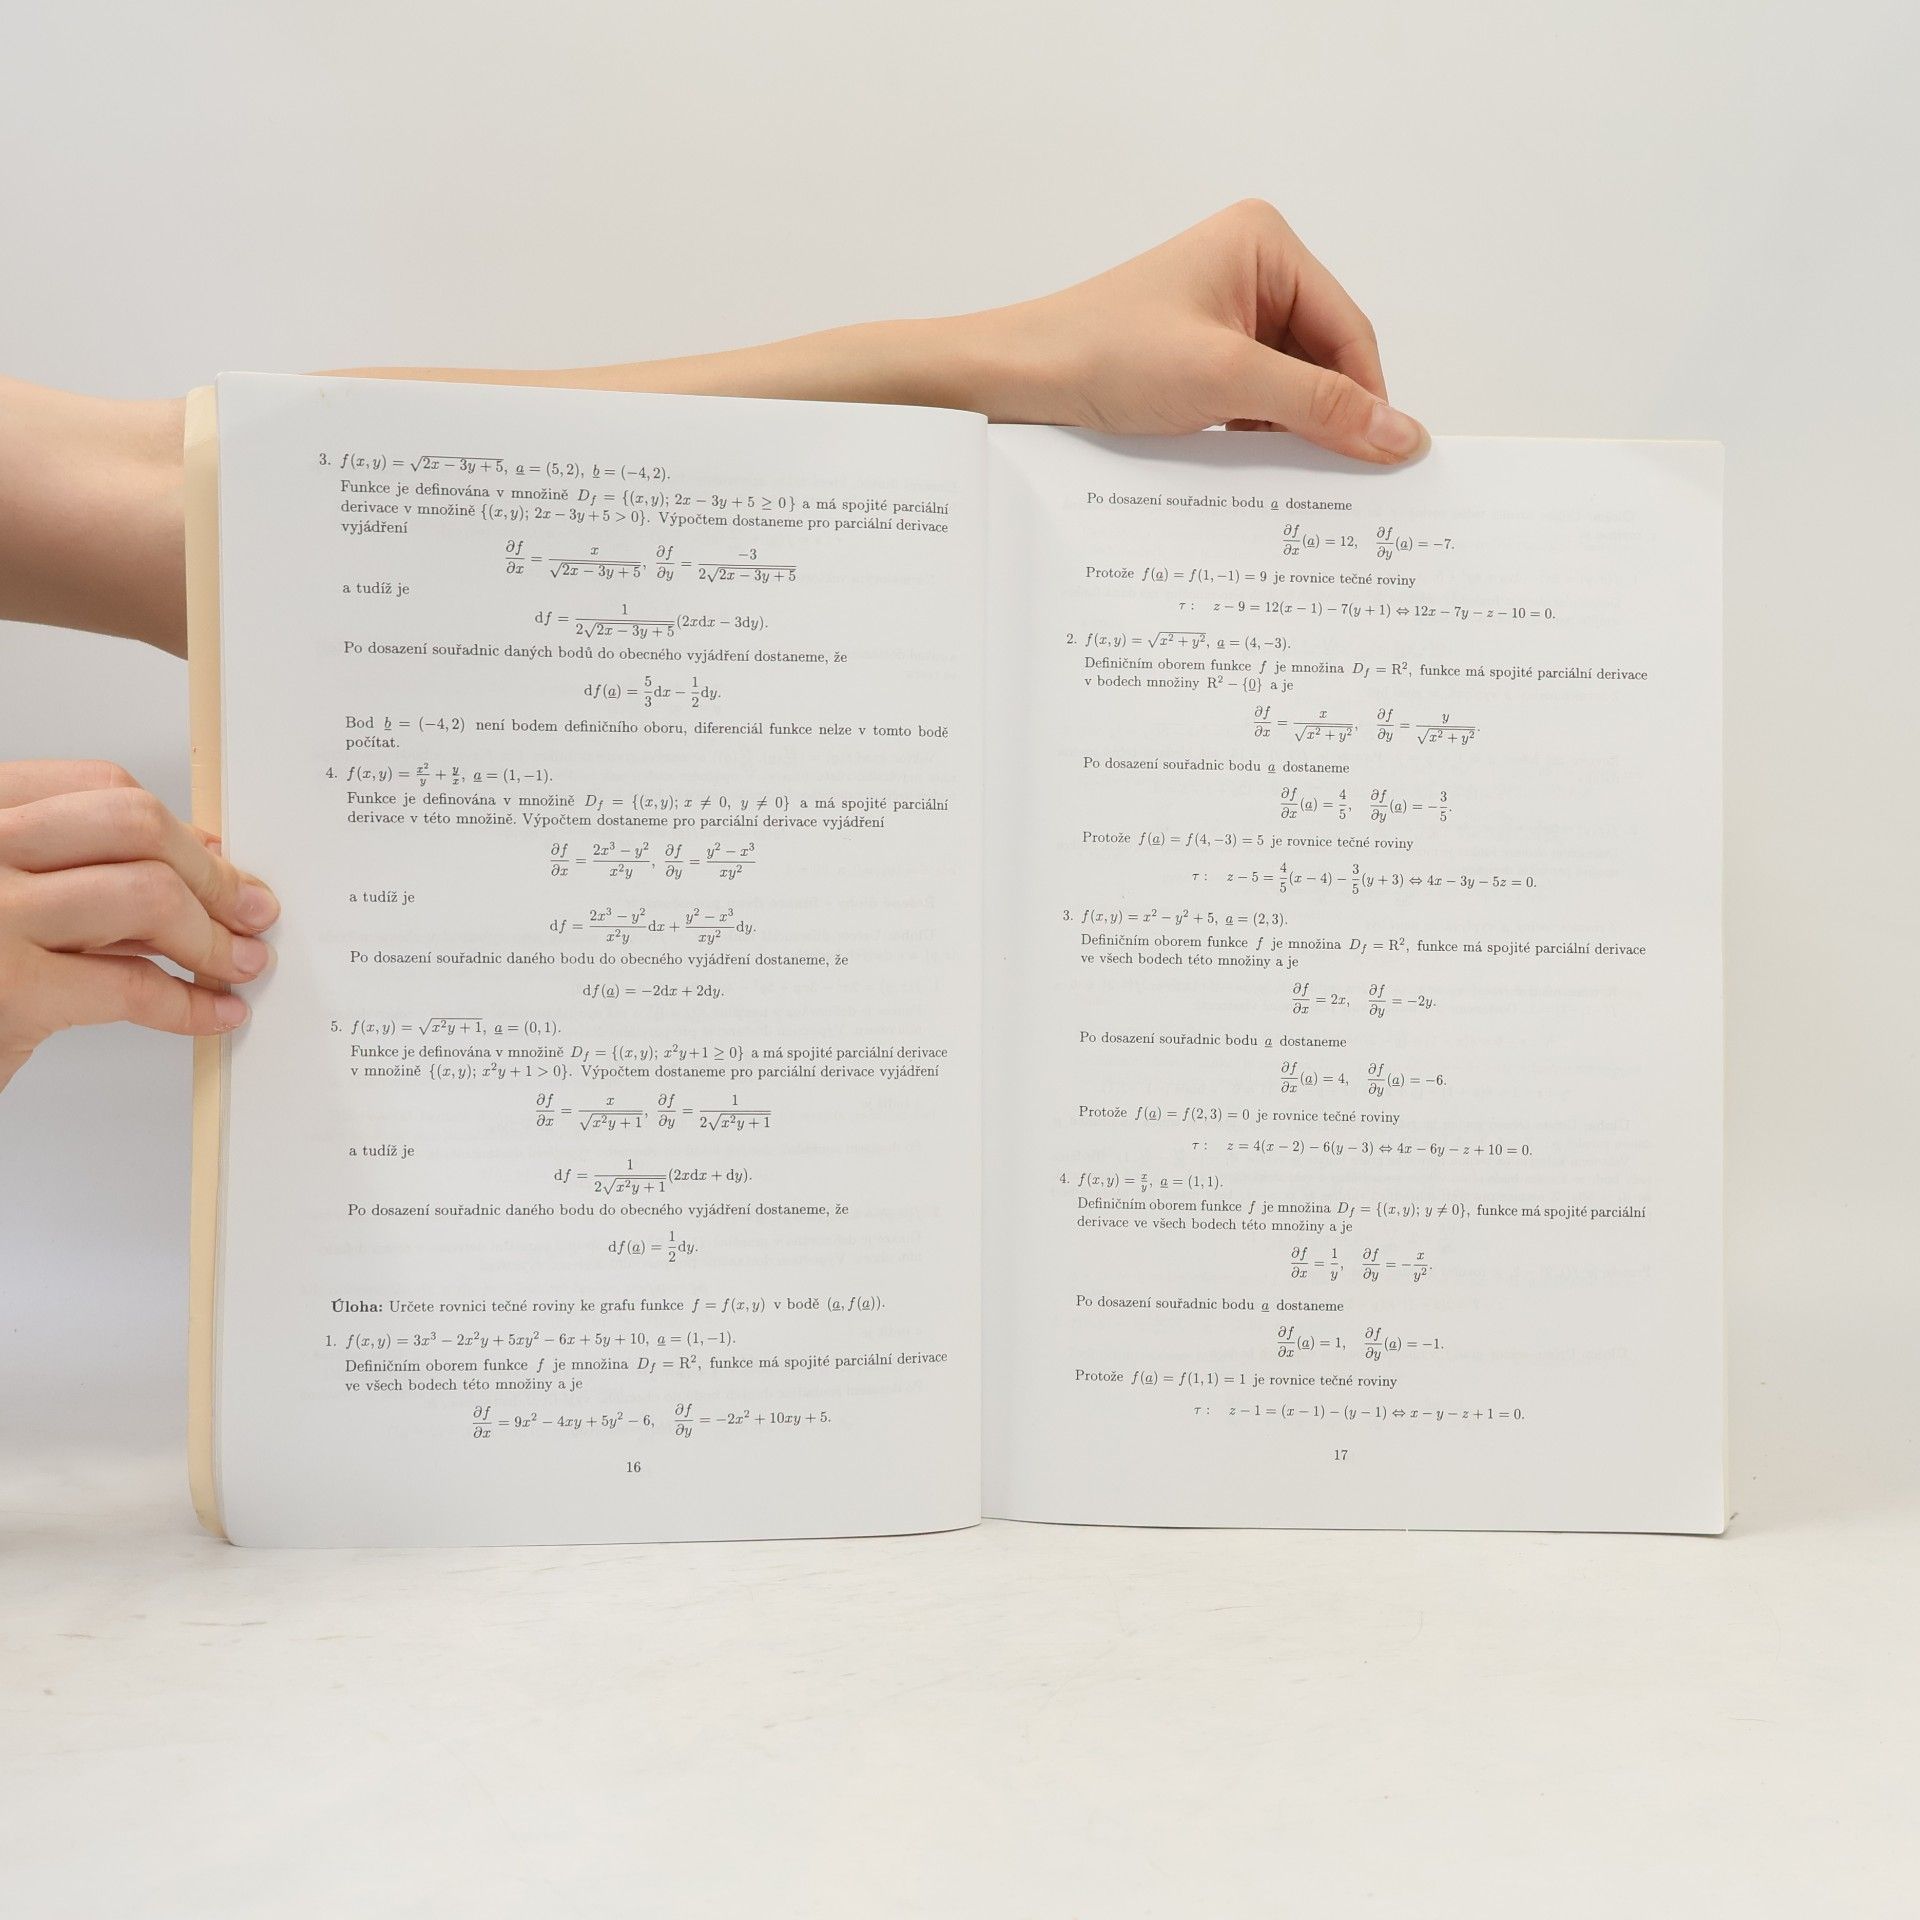 3. f(x,y) = √(2x − 3y + 5), a = (5, 2), b = (−4, 2).
Funkce je definována v množině D_f = {(x,y); 2x − 3y + 5 ≥ 0} a má spojité parciální
derivace v množině {(x,y); 2x − 3y + 5 > 0}. Výpočtem dostaneme pro parciální derivace
vyjádření
∂f/∂x = x/√(2x − 3y + 5), ∂f/∂y = −3/(2√(2x − 3y + 5))
a tudíž je
df = 1/(2√(2x − 3y + 5)) (2xdx − 3dy).
Po dosazení souřadnic daných bodů do obecného vyjádření dostaneme, že
df(a) = 5/3 dx − 1/2 dy.
Bod b = (−4, 2) není bodem definičního oboru, diferenciál funkce nelze v tomto bodě
počítat.
4. f(x,y) = x²/y + y/x, a = (1, −1).
Funkce je definována v množině D_f = {(x,y); x ≠ 0, y ≠ 0} a má spojité parciální
derivace v této množině. Výpočtem dostaneme pro parciální derivace vyjádření
∂f/∂x = (2x³ − y²)/(x²y), ∂f/∂y = (y² − x³)/(xy²)
a tudíž je
df = (2x³ − y²)/(x²y) dx + (y² − x³)/(xy²) dy.
Po dosazení souřadnic daného bodu do obecného vyjádření dostaneme, že
df(a) = −2dx + 2dy.
5. f(x,y) = √(x²y + 1), a = (0, 1).
Funkce je definována v množině D_f = {(x,y); x²y + 1 ≥ 0} a má spojité parciální derivace
v množině {(x,y); x²y + 1 > 0}. Výpočtem dostaneme pro parciální derivace vyjádření
∂f/∂x = x/√(x²y + 1), ∂f/∂y = 1/(2√(x²y + 1))
a tudíž je
df = 1/(2√(x²y + 1)) (2xdx + dy).
Po dosazení souřadnic daného bodu do obecného vyjádření dostaneme, že
df(a) = 1/2 dy.
Úloha: Určete rovnici tečné roviny ke grafu funkce f = f(x,y) v bodě (a, f(a)).
1. f(x,y) = 3x³ − 2x²y + 5xy² − 6x + 5y + 10, a = (1, −1).
Definičním oborem funkce f je množina D_f = R², funkce má spojité parciální derivace
ve všech bodech této množiny a je
∂f/∂x = 9x² − 4xy + 5y² − 6, ∂f/∂y = −2x² + 10xy + 5.
16
Po dosazení souřadnic bodu a dostaneme
∂f/∂x (a) = 12, ∂f/∂y (a) = −7.
Protože f(a) = f(1, −1) = 9 je rovnice tečné roviny
τ : z − 9 = 12(x − 1) − 7(y + 1) ⇔ 12x − 7y − z − 10 = 0.
2. f(x,y) = √(x² + y²), a = (4, −3).
Definičním oborem funkce f je množina D_f = R², funkce má spojité parciální derivace
v bodech množiny R² − {0} a je
∂f/∂x = x/√(x² + y²), ∂f/∂y = y/√(x² + y²).
Po dosazení souřadnic bodu a dostaneme
∂f/∂x (a) = 4/5, ∂f/∂y (a) = −3/5.
Protože f(a) = f(4, −3) = 5 je rovnice tečné roviny
τ : z − 5 = 4/5 (x − 4) − 3/5 (y + 3) ⇔ 4x − 3y − 5z = 0.
3. f(x,y) = x² − y² + 5, a = (2, 3).
Definičním oborem funkce f je množina D_f = R², funkce má spojité parciální derivace
ve všech bodech této množiny a je
∂f/∂x = 2x, ∂f/∂y = −2y.
Po dosazení souřadnic bodu a dostaneme
∂f/∂x (a) = 4, ∂f/∂y (a) = −6.
Protože f(a) = f(2, 3) = 0 je rovnice tečné roviny
τ : z = 4(x − 2) − 6(y − 3) ⇔ 4x − 6y − z + 10 = 0.
4. f(x,y) = x/y, a = (1, 1).
Definičním oborem funkce f je množina D_f = {(x,y); y ≠ 0}, funkce má spojité parciální
derivace ve všech bodech této množiny a je
∂f/∂x = 1/y, ∂f/∂y = −x/y².
Po dosazení souřadnic bodu a dostaneme
∂f/∂x (a) = 1, ∂f/∂y (a) = −1.
Protože f(a) = f(1, 1) = 1 je rovnice tečné roviny
τ : z − 1 = (x − 1) − (y − 1) ⇔ x − y − z + 1 = 0.
17